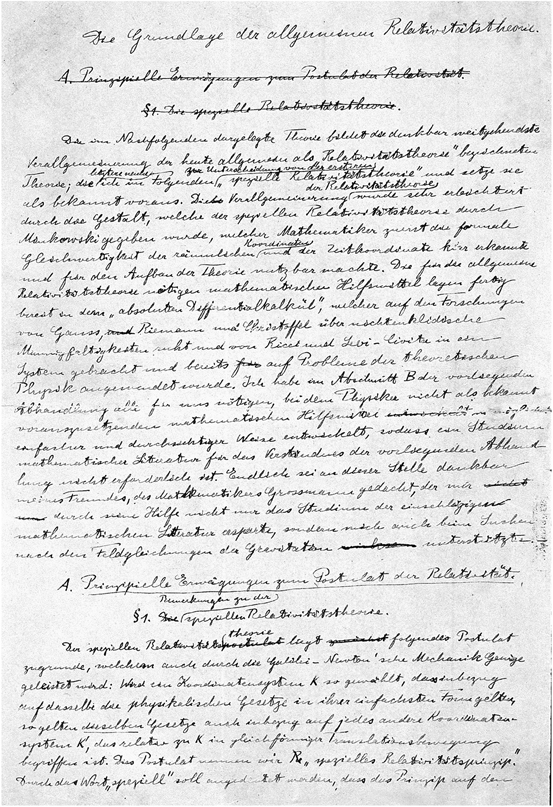 Die Grundlage der allgemeinen Relativitätstheorie.
A. Prinzipielle Erwägungen zum Postulat der Relativität.
§1. Die spezielle Relativitätstheorie.
Die im Nachfolgenden dargelegte Theorie bildet die denkbar weitgehendste
Verallgemeinerung der heute allgemein als "Relativitätstheorie" bezeichneten
letztere nenne zur Unterscheidung von der ersteren
Theorie; die ich im Folgenden "spezielle Relativitätstheorie" und setze sie
der Relativitätstheorie
als bekannt voraus. Die Verallgemeinerung wurde sehr erleichtert
durch die Gestalt, welche der speziellen Relativitätstheorie durch
Minkowski gegeben wurde, welcher Mathematiker zuerst die formale
Koordinaten
Gleichwertigkeit der räumlichen und der Zeitkoordinate klar erkannte
und für den Aufbau der Theorie nutzbar machte. Die für die allgemeine
Relativitätstheorie nötigen mathematischen Hilfsmittel lagen fertig
bereit in dem "absoluten Differentialkalkül", welcher auf den Forschungen
von Gauss, und Riemann und Christoffel über nichteuklidische
Mannigfaltigkeiten ruht und von Ricci und Levi-Civita in ein
System gebracht und bereits auf Probleme der theoretischen
Physik angewendet wurde. Ich habe im Abschnitt B der vorliegenden
Abhandlung alle für uns nötigen, bei dem Physiker nicht als bekannt
vorauszusetzenden mathematischen Hilfsmittel in
einfacher und durchsichtiger Weise entwickelt, sodass ein Studium
mathematischer Literatur für das Verständnis der vorliegenden Abhand
lung nicht erforderlich ist. Endlich sei an dieser Stelle dankbar
meines Freundes, des Mathematikers Grossmann gedacht, der mir
durch seine Hilfe nicht nur das Studium der einschlägigen
mathematischen Literatur ersparte, sondern mich auch beim Suchen
nach den Feldgleichungen der Gravitation unterstützte.
A. Prinzipielle Erwägungen zum Postulat der Relativität.
Bemerkungen zu der
§1. Die speziellen Relativitätstheorie.
theorie
Der speziellen Relativitätspostulat liegt folgendes Postulat
zugrunde, welchem auch durch die Galilei-Newton'sche Mechanik Genüge
geleistet wird: Wird ein Koordinatensystem K so gewählt, dass inbezug
auf dasselbe die physikalischen Gesetze in ihrer einfachsten Form gelten,
so gelten dieselben Gesetze auch inbezug auf jedes andere Koordinaten-
system K', das relativ zu K in gleichförmiger Translationsbewegung
begriffen ist. Das Postulat nennen wir "spezielles Relativitätsprinzip."
Durch das Wort "speziell" soll angedeutet werden, dass das Prinzip auf den